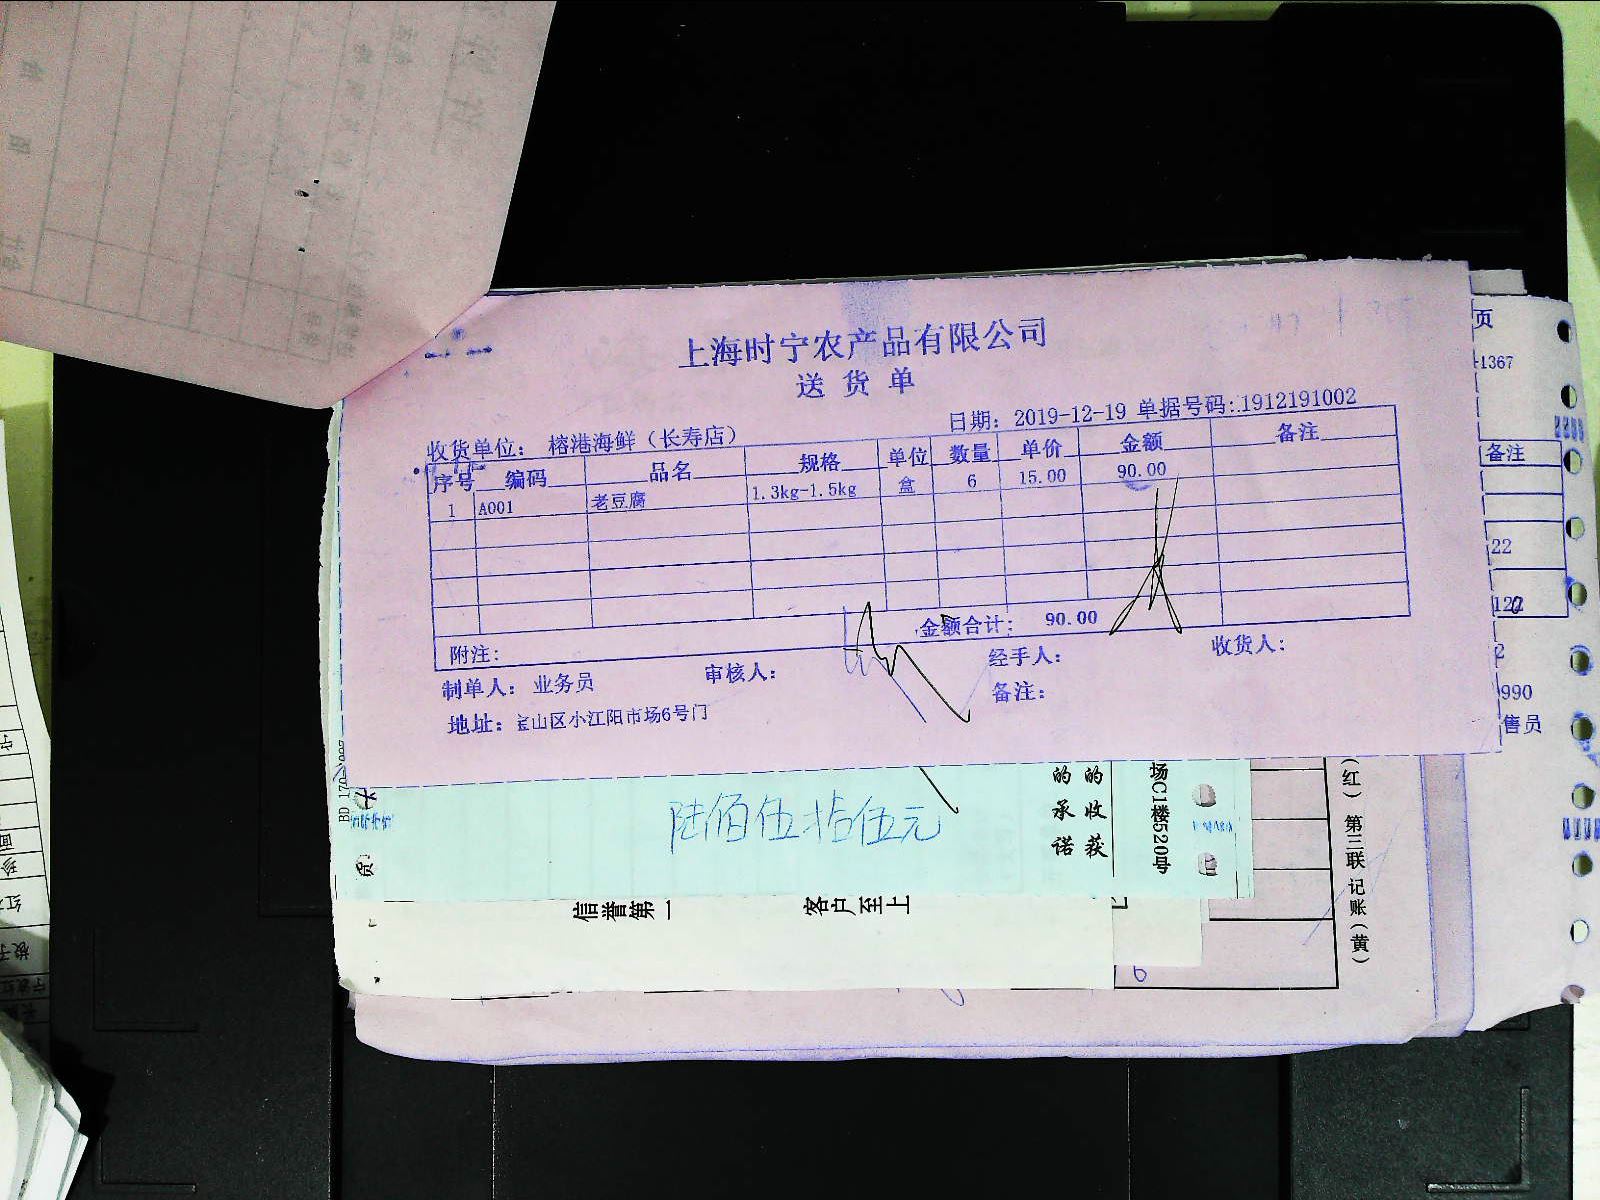 上海时宁农产品有限公司
送货单
日期：2019-12-19 单据号码：1912191002
收货单位： 榕港海鲜（长寿店）
序号 编码 品名 规格 单位 数量 单价 金额 备注
1 A001 老豆腐 1.3kg-1.5kg 盒 6 15.00 90.00
金额合计： 90.00
附注：
制单人： 业务员 审核人： 经手人： 收货人：
备注：
地址：宝山区小江阳市场6号门
页
1367
备注
22
2
990
售员
陆佰伍拾伍元
的承诺
的收获
场C1楼520号
信誉第一 客户至上
（红） 第三联 记账（黄）
6